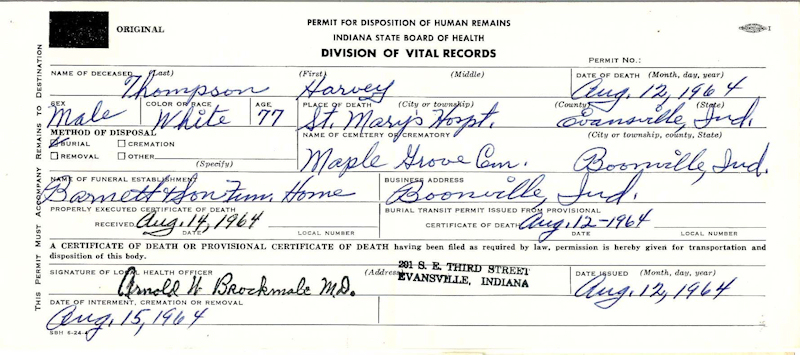 ORIGINAL
PERMIT FOR DISPOSITION OF HUMAN REMAINS
INDIANA STATE BOARD OF HEALTH
DIVISION OF VITAL RECORDS
PERMIT NO.:
THIS PERMIT MUST ACCOMPANY REMAINS TO DESTINATION
NAME OF DECEASED (Last) (First) (Middle) DATE OF DEATH (Month, day, year)
Thompson Harvey Aug. 12, 1964
SEX COLOR OR RACE AGE PLACE OF DEATH (City or township) (County) (State)
Male White 77 St. Marys Hospt. Evansville, Ind.
METHOD OF DISPOSAL NAME OF CEMETERY OR CREMATORY (City or township, county, State)
BURIAL CREMATION
REMOVAL OTHER
(Specify)
Maple Grove Cem. Boonville, Ind.
NAME OF FUNERAL ESTABLISHMENT BUSINESS ADDRESS
Barnett & Son Fun. Home Boonville, Ind.
PROPERLY EXECUTED CERTIFICATE OF DEATH BURIAL TRANSIT PERMIT ISSUED FROM PROVISIONAL
RECEIVED Aug. 14, 1964 CERTIFICATE OF DEATH Aug. 12-1964
DATE LOCAL NUMBER DATE LOCAL NUMBER
A CERTIFICATE OF DEATH OR PROVISIONAL CERTIFICATE OF DEATH having been filed as required by law, permission is hereby given for transportation and
disposition of this body.
SIGNATURE OF LOCAL HEALTH OFFICER (Address) DATE ISSUED (Month, day, year)
Arnold W Brockmole M.D. 201 S. E. THIRD STREET
EVANSVILLE, INDIANA
Aug. 12, 1964
DATE OF INTERMENT, CREMATION OR REMOVAL
Aug. 15, 1964
SBH 6-24-4